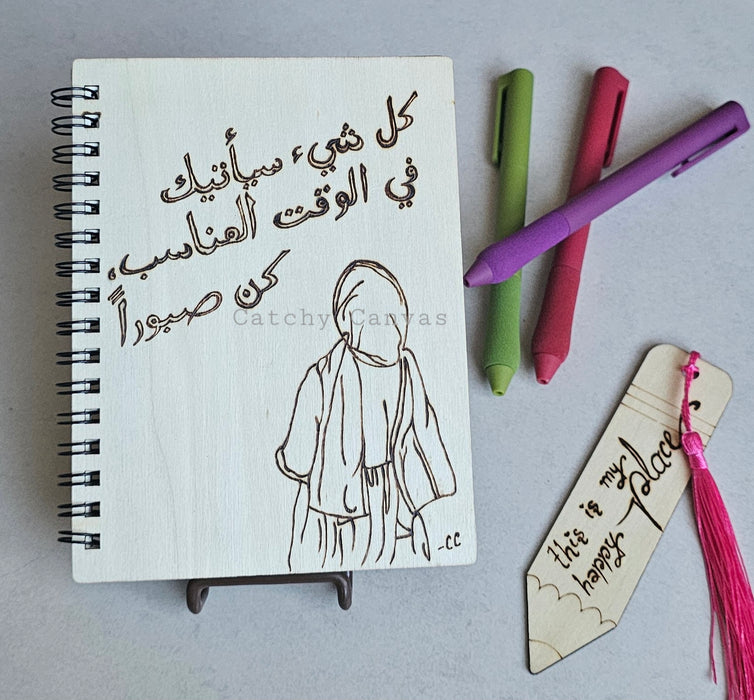 كل شيء سيأتيك
في الوقت المناسب،
كن صبوراً
Catchy Canvas
-CC
this is my
happy
place